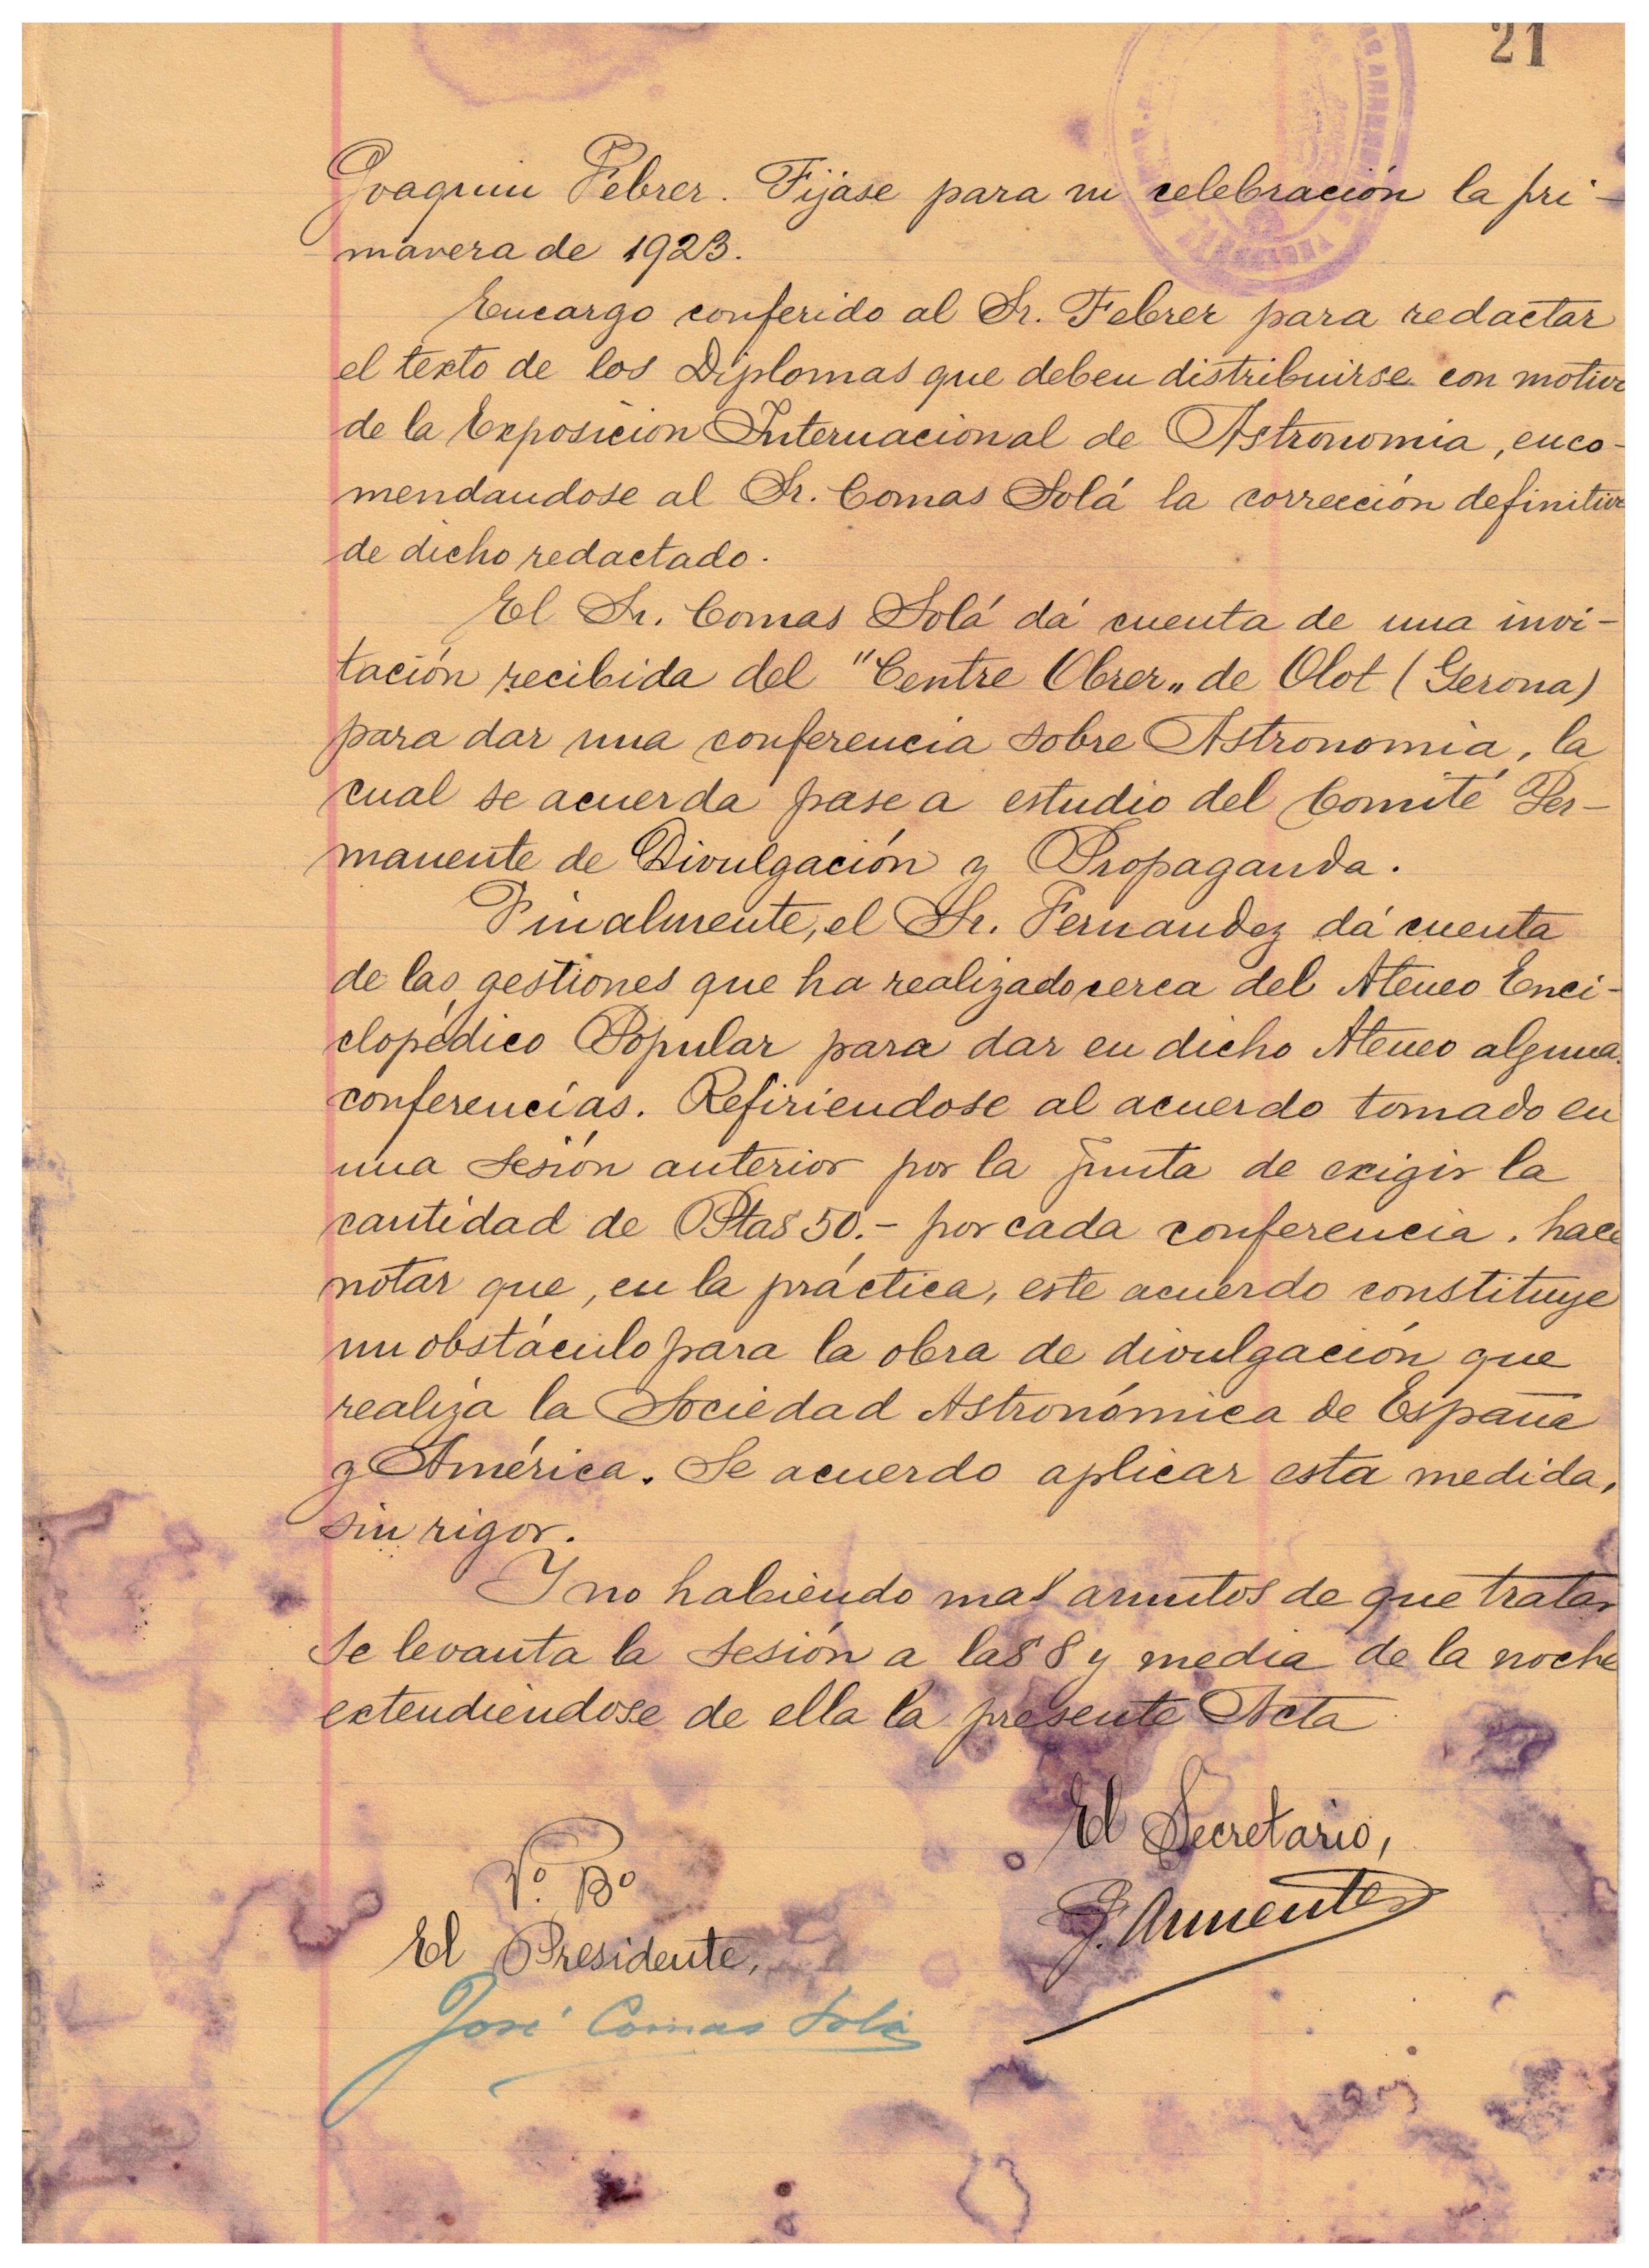 21
Joaquin Febrer. Fijase para su celebración la pri-
mavera de 1923.
Encargo conferido al Sr. Febrer para redactar
el texto de los Diplomas que deben distribuirse con motivo
de la Exposicion Internacional de Astronomia, enco-
mendandose al Sr. Comas Solá la corrección definitiva
de dicho redactado.
El Sr. Comas Solá dá cuenta de una invi-
tación recibida del "Centre Obrer„ de Olot (Gerona)
para dar una conferencia sobre Astronomia, la
cual se acuerda pase a estudio del Comité Per-
manente de Divulgación y Propaganda.
Finalmente, el Sr. Fernandez dá cuenta
de las gestiones que ha realizado cerca del Ateneo Enci-
clopédico Popular para dar en dicho Ateneo alguna
conferencias. Refiriendose al acuerdo tomado en
una sesión anterior por la Junta de exigir la
cantidad de Ptas 50.- por cada conferencia, hace
notar que, en la práctica, este acuerdo constituye
un obstáculo para la obra de divulgación que
realiza la Sociedad Astronómica de España
y América. Se acuerdo aplicar esta medida,
sin rigor.
Y no habiendo mas asuntos de que tratar
se levanta la sesión a las 8 y media de la noche
extendiéndose de ella la presente Acta
El Secretario,
Vº. Bº
El Presidente,
José Comas Solá